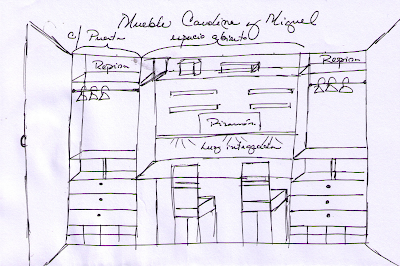 Mueble Caroline y Miguel
c/ Puerta
espacio abierto
Repisa
Repisa
Pizarrón
Luz integrada